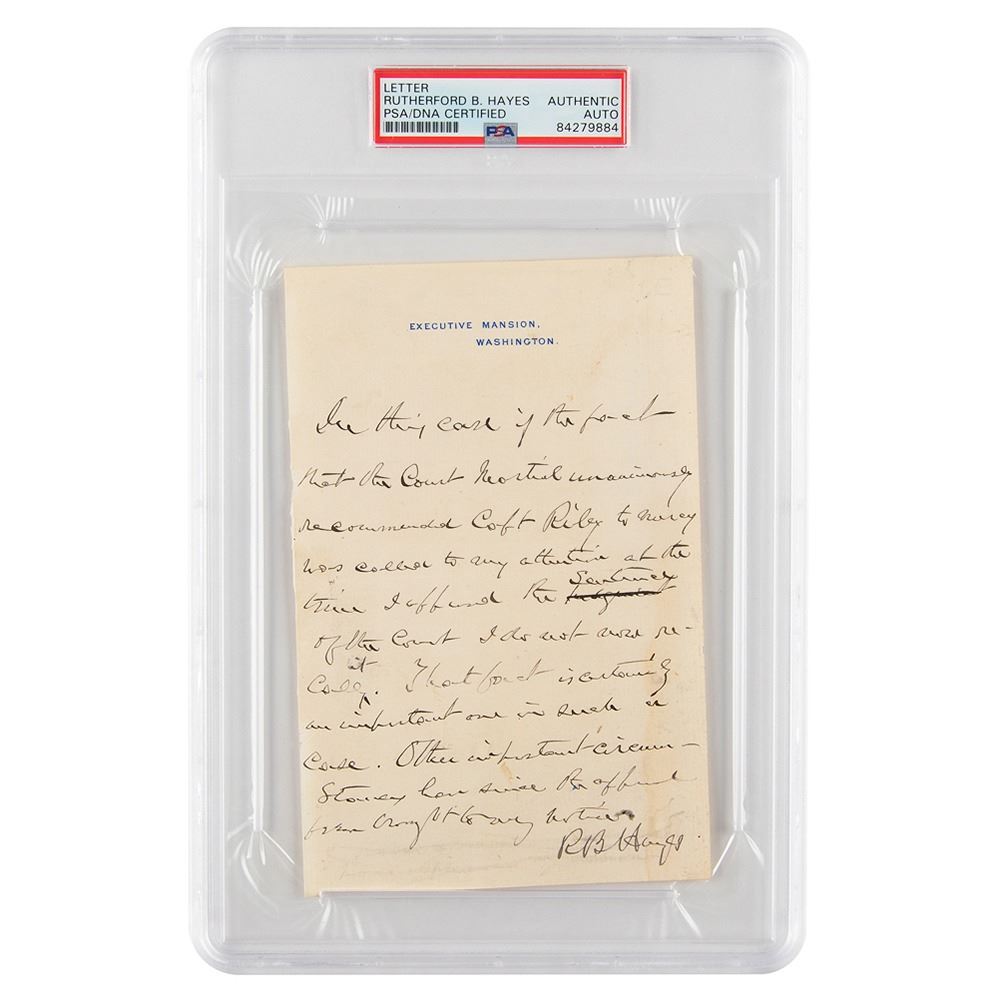 LETTER
RUTHERFORD B. HAYES AUTHENTIC
PSA/DNA CERTIFIED AUTO
PSA 84279884
EXECUTIVE MANSION,
WASHINGTON.
In this case if the fact
that the Court Martial unanimously
recommended Capt Riley to mercy
was called to my attention at the
time I approved the Sentence
of the Court I do not now re-
call it. That fact is certainly
an important one in such a
case. Other important circum-
stances have since the approval
been brought to my notice
R B Hayes